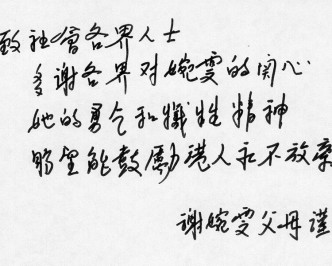 致社會各界人士
多謝各界对婉雯的関心
她的勇气和犧牲精神
盼望能鼓勵港人永不放棄
謝婉雯父母謹